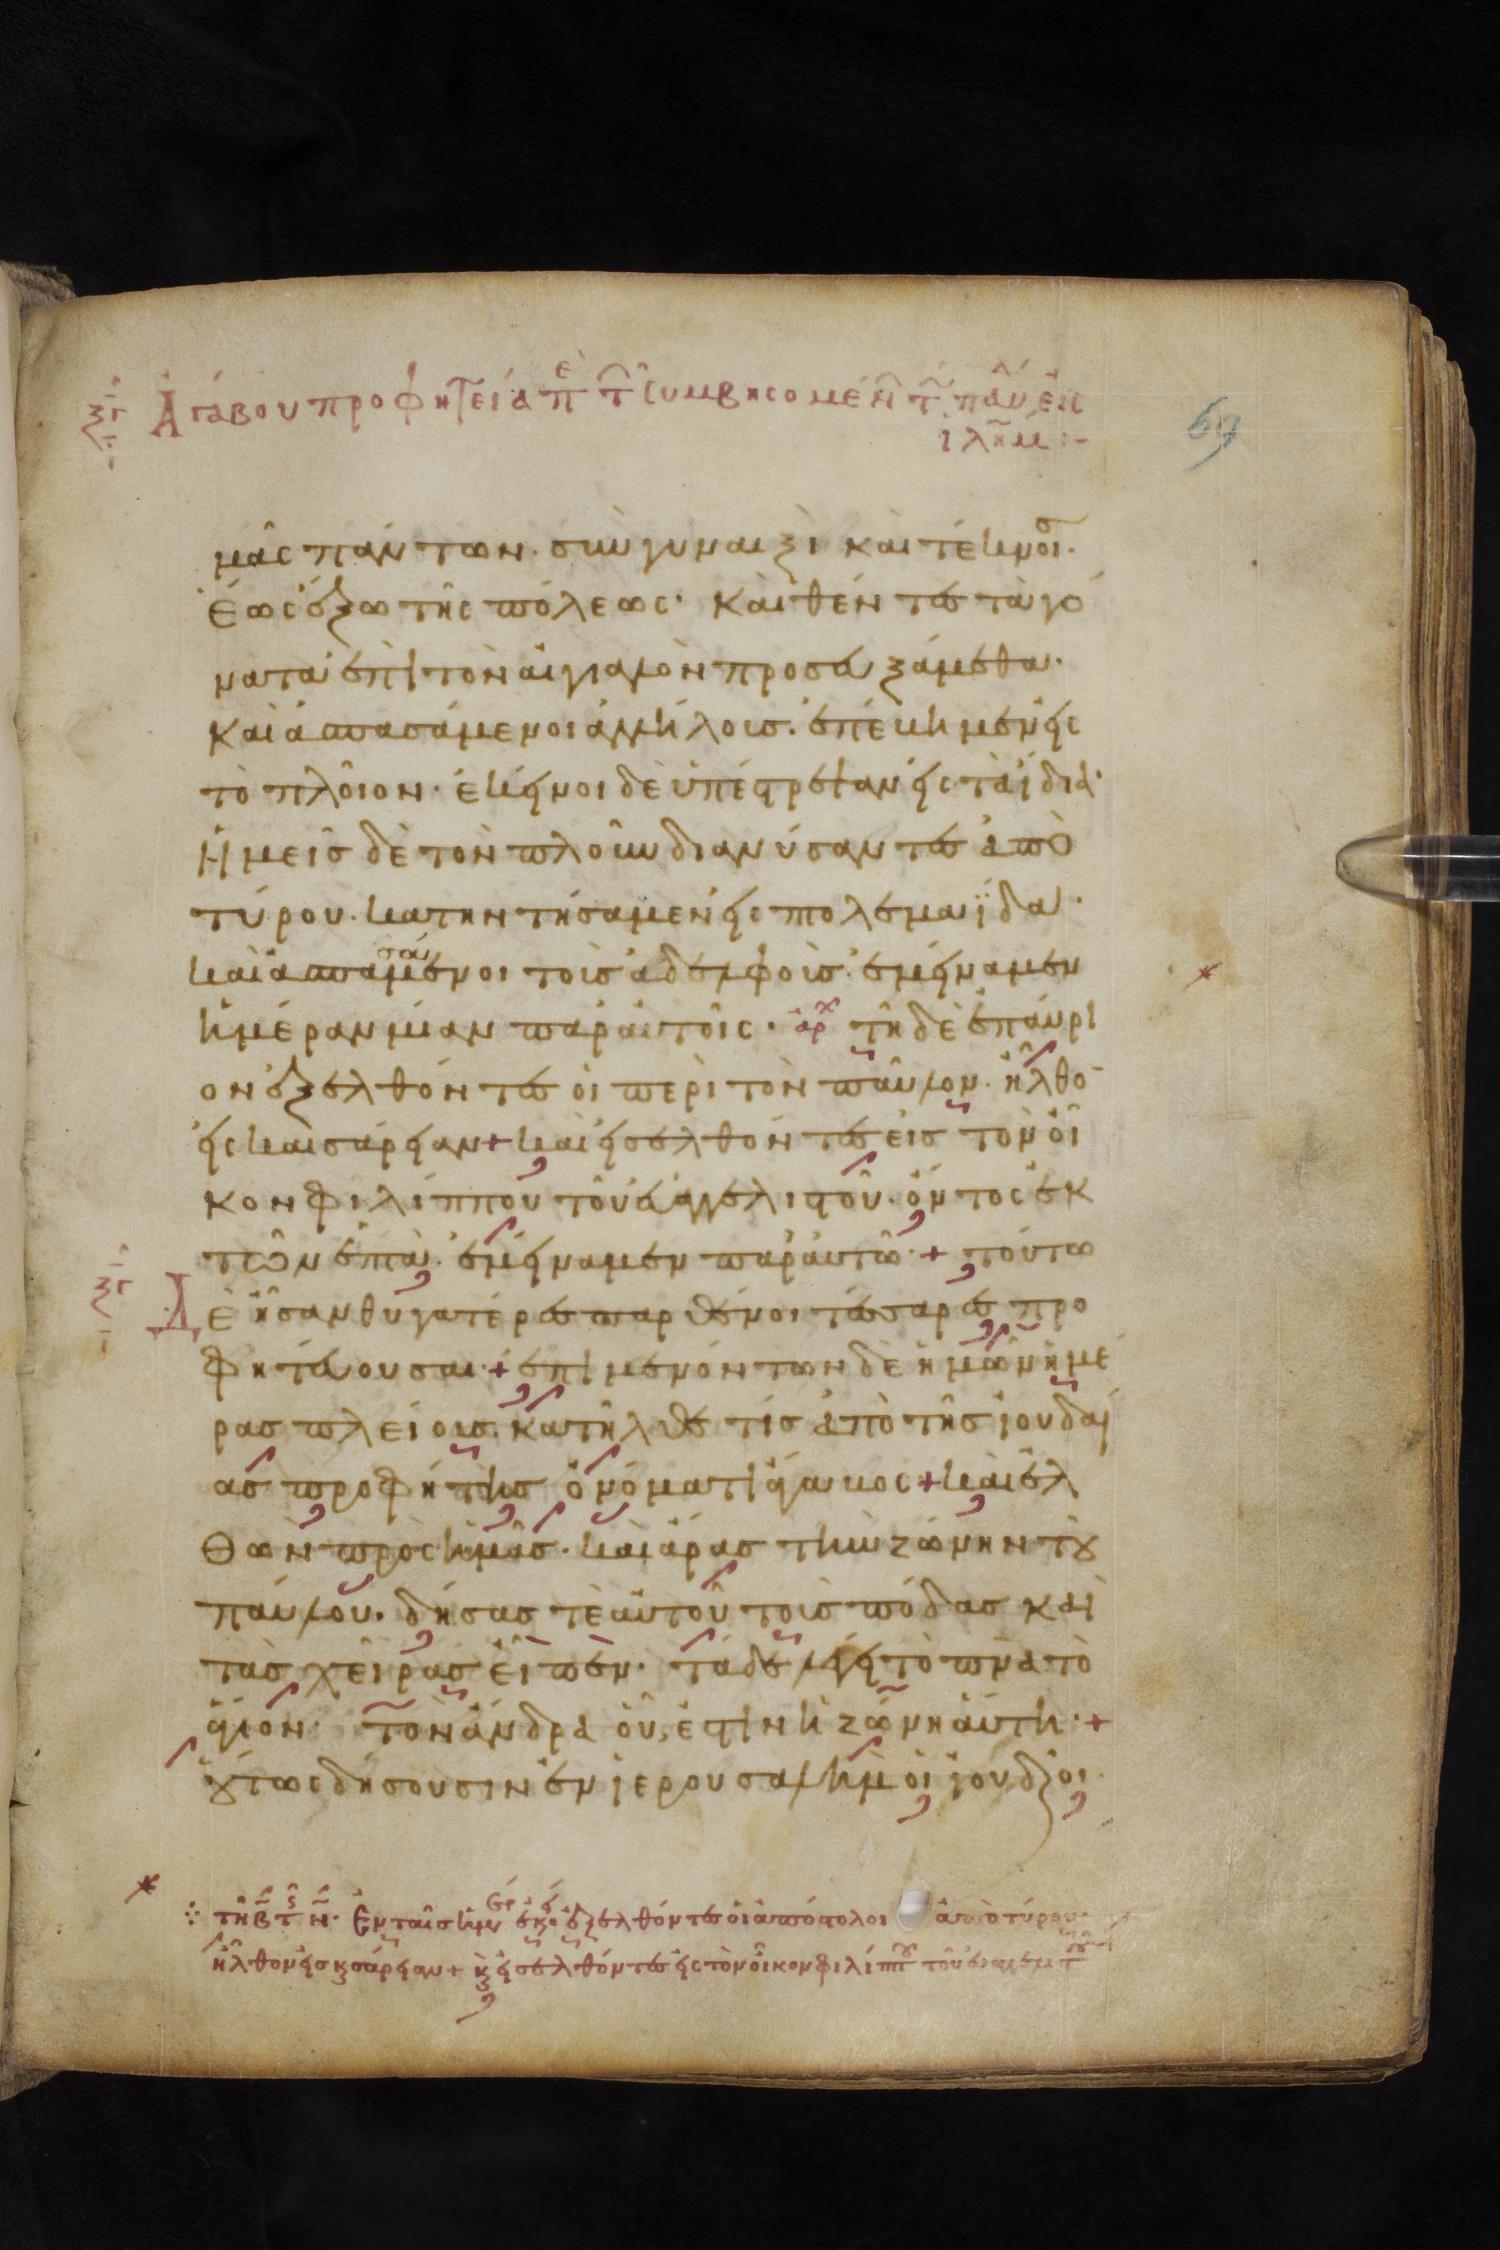 ξγ Ἀγάβου προφητεία π τ συμβησομέν τ παυ εἰς
ἰλημ :-
69
μᾶς πάντων· σὺν γυναιξὶ καὶ τέκνοις·
ἕως ἔξω τῆς πόλεως· καὶ θέντες τὰ γό
νατα ἐπὶ τὸν αἰγιαλὸν προσευξάμεθα·
καὶ ἀσπασάμενοι ἀλλήλοις· ἐπέβημεν εἰς
τὸ πλοῖον· ἐκεῖνοι δὲ ὑπέστρεψαν εἰς τὰ ἴδια·
Ἡμεῖς δὲ τὸν πλοῦν διανύσαντες ἀπὸ
τύρου· κατηντήσαμεν εἰς πτολεμαΐδα·
καὶ ἀσπασάμενοι τοὺς ἀδελφοὺς· ἐμείναμεν
ἡμέραν μίαν παρ αὐτοῖς· ἀρχ τῆ δὲ ἐπαύρι
ον ἐξελθόντες οἱ περὶ τὸν παῦλον· ἦλθο
εἰς καισάρειαν + καὶ εἰσελθόντες εἰς τὸν οἶ
κον φιλίππου τοῦ εὐαγγελιστοῦ· ὄντος ἐκ
τῶν ἑπτὰ· ἐμείναμεν παρ αὐτῶ + τούτω
Δ
ξγ
ὲ ἦσαν θυγατέρες παρθένοι τέσσαρες προ
φητεύουσαι + ἐπιμενόντων δὲ ἡμῶν ἡμέ
ρας πλείους· κατῆλθε τίς ἀπὸ τῆς ἰουδαί
ας προφήτης ὀνόματι ἄγαβος + καὶ ἐλ
θὼν πρὸς ἡμᾶς· καὶ ἄρας τὴν ζώνην τοῦ
παύλου· δήσας τὲ αὑτοῦ τοὺς πόδας καὶ
τὰς χεῖρας εἶπεν· τάδε λέγει τὸ πνα τὸ
ἅγιον· τὸν ἄνδρα οὗ ἐστιν ἡ ζώνη αὕτη· +
οὕτως δήσουσιν ἐν ἰερουσαλὴμ οἱ ἰουδαῖοι·
τῆ β τ ν· Ἐν ταῖς ἡμ ἐκ ἐξελθόντες οἱ ἀπόστολοι ἀπὸ τύρου
ἦλθον εἰς κσάρειαν + κ εἰσελθόντες εἰς τὸν οἶκον φιλίππου τοῦ